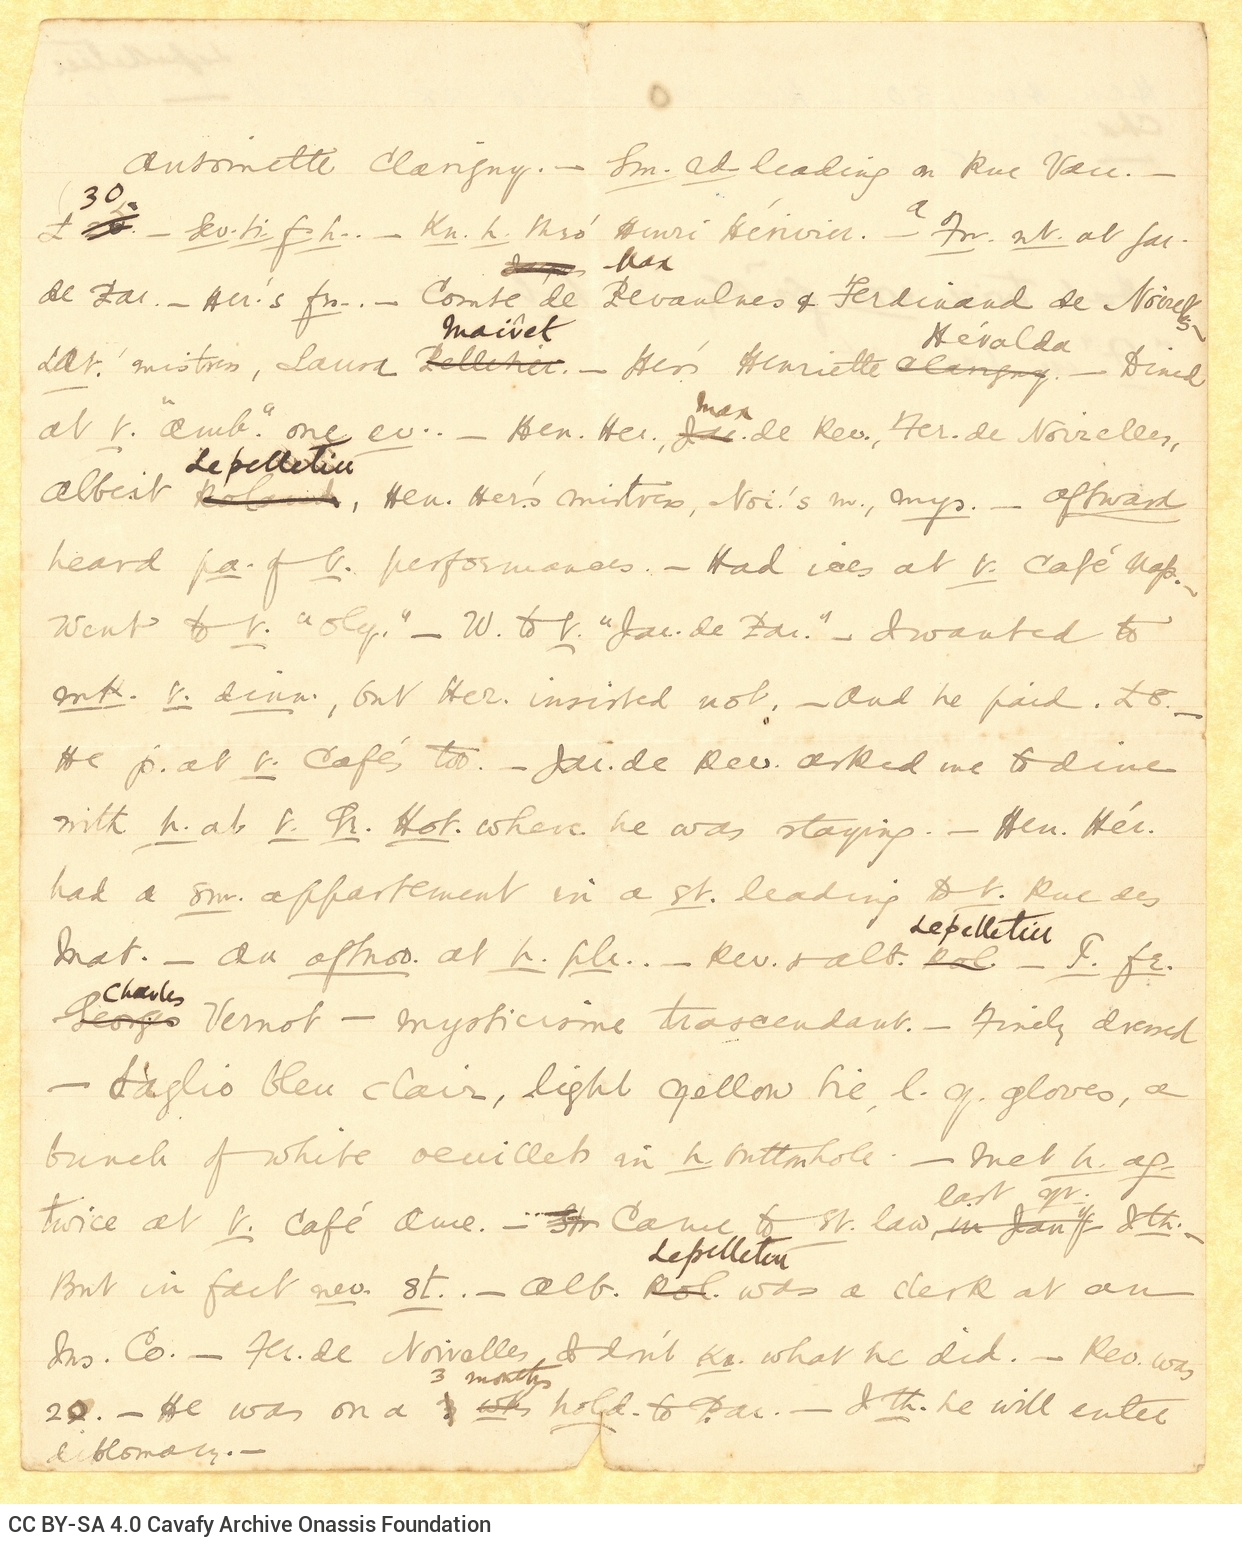 Antoinette Clavigny. — Sm. rd leading on Rue Vau. —
30
£ — Sev. ti f h. . — Kn. h. thro' Henri Hérivier. — a Fr. nt. at Jar.
James Max
de Par. — Her.'s fr. . — Comte de Revaulnes & Ferdinand de Noirelles
Maivet Hévalda
Lat.' mistress, Laura Pelletier. — Her's Henriette Clavigny. — Dined
Max
at t. "Amb." one ev. . — Hen. Her., Jac. de Rev., Fer. de Noirelles,
Lepelletier
Albert Roland, Hen. Her's mistress, Noi.'s m., mys. — aftward
heard pa. of t. performances. — Had ices at t. Café Nap. —
Went to t. "Oly." — W. to t. "Jar. de Par." — I wanted to
mk. t. dinn., but Her. insisted not. — And he paid. £8. —
He p. at t. Cafés too. — Jac. de Rev. asked me to dine
with h. at t. Gr. Hot. where he was staying. — Hen. Hér.
had a sm. appartement in a st. leading to t. Rue des
Lepelletier
Mat. — An aftnoo. at h. pla. . — Rev. & Alb. Rol. — T. fr.
Charles
George Vernot — mysticisme trascendant. — Finely dressed
— taglio bleu clair, light yellow tie, l. y. gloves, a
bunch of white oeuillets in h. buttonhole. — Met h. ag.
last yr.
twice at t. Café Ame. — Str Came to st. law, in Jan'y I th. —
Lepelletier
But in fact nev. st. . — Alb. Rol. was a clerk at an
Ins. Co. — Fer. de Noirelles, I don't kn. what he did. — Rev. was
3 months
22. — He was on a wks hold. to Par. — I th. he will enter
diplomacy. —
CC BY-SA 4.0 Cavafy Archive Onassis Foundation